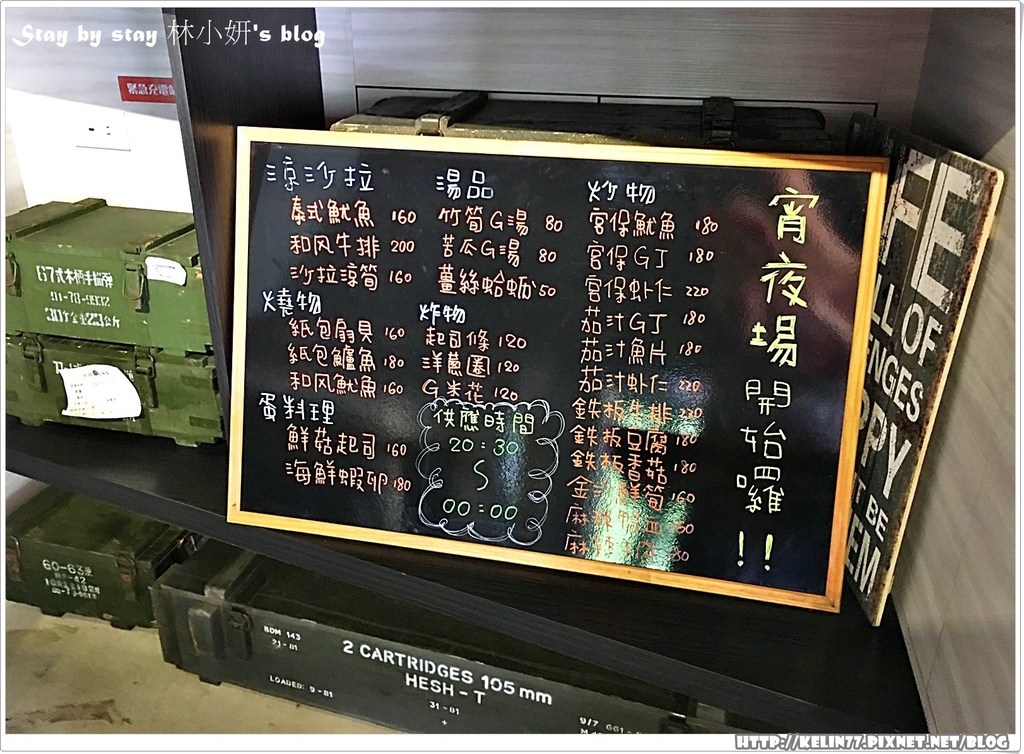 Stay by stay 林小妍's blog
緊急充電
涼沙拉
泰式魷魚 160
和风牛排 200
沙拉涼筍 160
燒物
紙包扇貝 160
紙包鱸魚 180
和风魷魚 160
蛋料理
鮮菇起司 160
海鮮蝦卵 180
湯品
竹筍G湯 80
苦瓜G湯 80
薑絲蛤蛎 50
炸物
起司條 120
洋蔥圈 120
G米花 120
供應時間
20:30
S
00:00
炒物
宮保魷魚 180
宮保GJ 180
宮保虾仁 220
茄汁GJ 180
茄汁魚片 180
茄汁虾仁 220
鉄板牛排 220
鉄板豆腐 180
鉄板香菇 180
金沙鮮筍 160
麻辣
麻辣
宵夜場開始囉!!
FE
ALL OF
ENGES
PPY
T BE
EM
67式木柄手榴彈
01-78-9992
60-63
-42
BDM 143
21-81
LOADED: 9-81
2 CARTRIDGES 105 mm
HESH-T
31-81
+
9/7 661-
HTTP://KELIN77.PIXNET.NET/BLOG